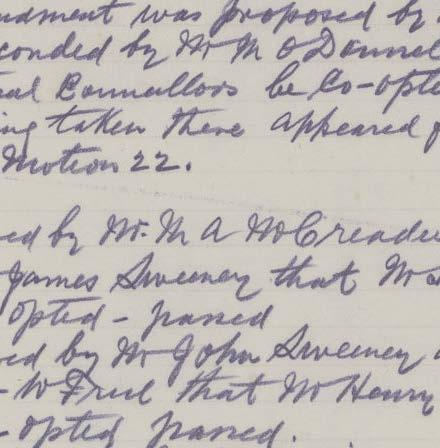 ndment was proposed by
conded by Mr M O'Donnel
ral Councillors be Co-opte
ing taken there appeared f
Motion 22.
ed by Mr. M A McCreadie
James Sweeney that Mr
opted - passed
ed by Mr John Sweeney
- W Friel that Mr Henry
- opted passed.